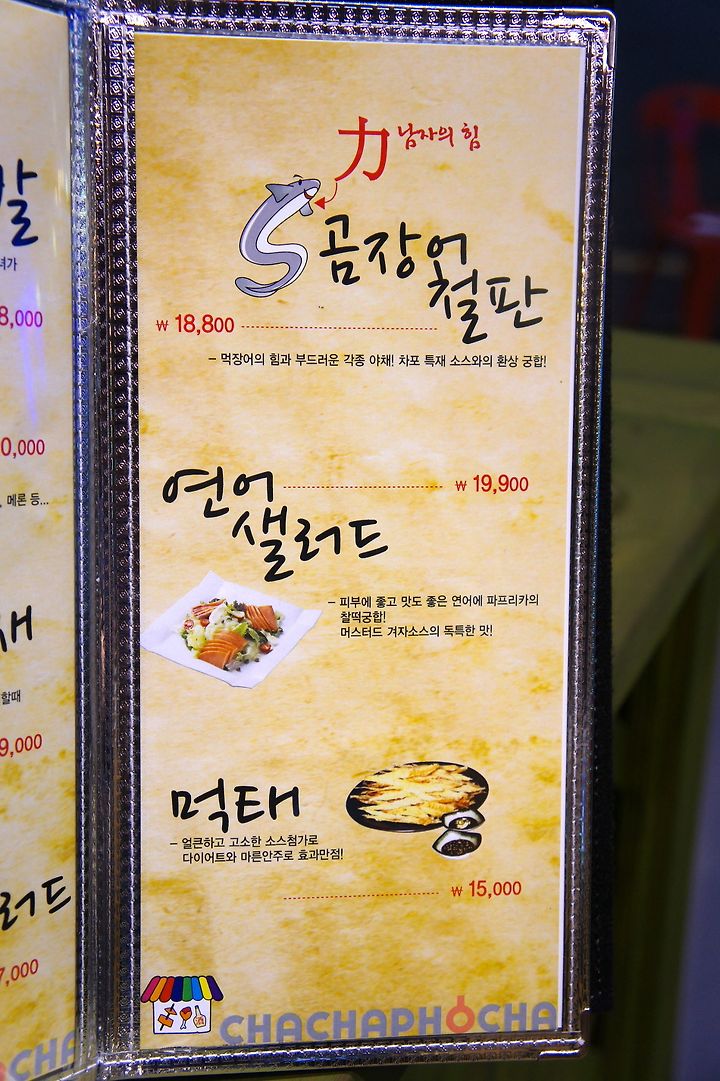 발
8,000
0,000
메론 등...
할때
9,000
러드
7,000
CHA
力 남자의 힘
곰장어
철판
₩ 18,800
– 먹장어의 힘과 부드러운 각종 야채! 차포 특재 소스와의 환상 궁합!
연어
샐러드
₩ 19,900
– 피부에 좋고 맛도 좋은 연어에 파프리카의
찰떡궁합!
머스터드 겨자소스의 독특한 맛!
먹태
– 얼큰하고 고소한 소스첨가로
다이어트와 마른안주로 효과만점!
₩ 15,000
CHACHAPHOCHA